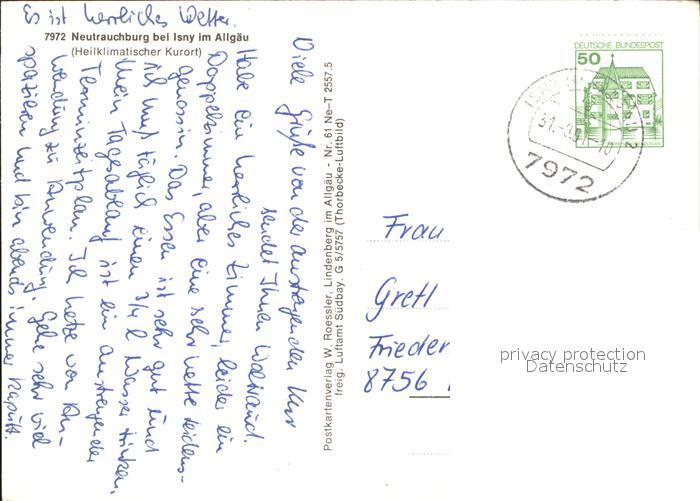 Es ist herrliches Wetter.
7972 Neutrauchburg bei Isny im Allgäu
(Heilklimatischer Kurort)
Viele Grüße von der anstrengenden Kur
sendet Ihnen Waltraud.
Habe ein herrliches Zimmer, leider ein
Doppelzimmer, aber eine sehr nette Leidens-
genossin. Das Essen ist sehr gut und
ich muß täglich einen 3/4 l Wasser trinken.
Mein Tagesablauf ist ein anstrengender
Terminzeitplan. Ich hetze von An-
wendung zu Anwendung. Gehe sehr viel
spazieren und bin abends immer kaputt.
Postkartenverlag W. Roessler, Lindenberg im Allgäu - Nr. 61 Ne–T 2557.5
freig. Luftamt Südbay. G 5/5757 (Thorbecke-Luftbild)
DEUTSCHE BUNDESPOST
50
7972
Frau
Gretl
Frieder
8756
privacy protection
Datenschutz